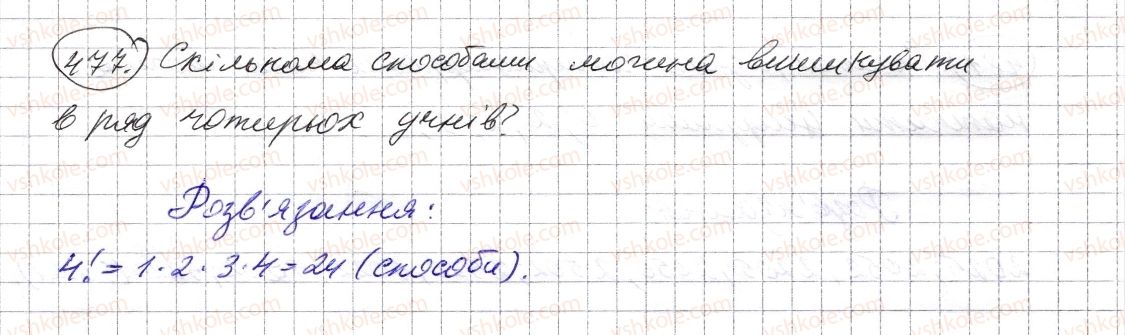 477. Скількома способами можна вишикувати
в ряд чотирьох учнів?
Розв'язання:
4! = 1 · 2 · 3 · 4 = 24 (способи).